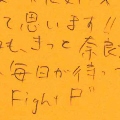 て思います!!
も、きっと奈良
毎日が待って
Fight P